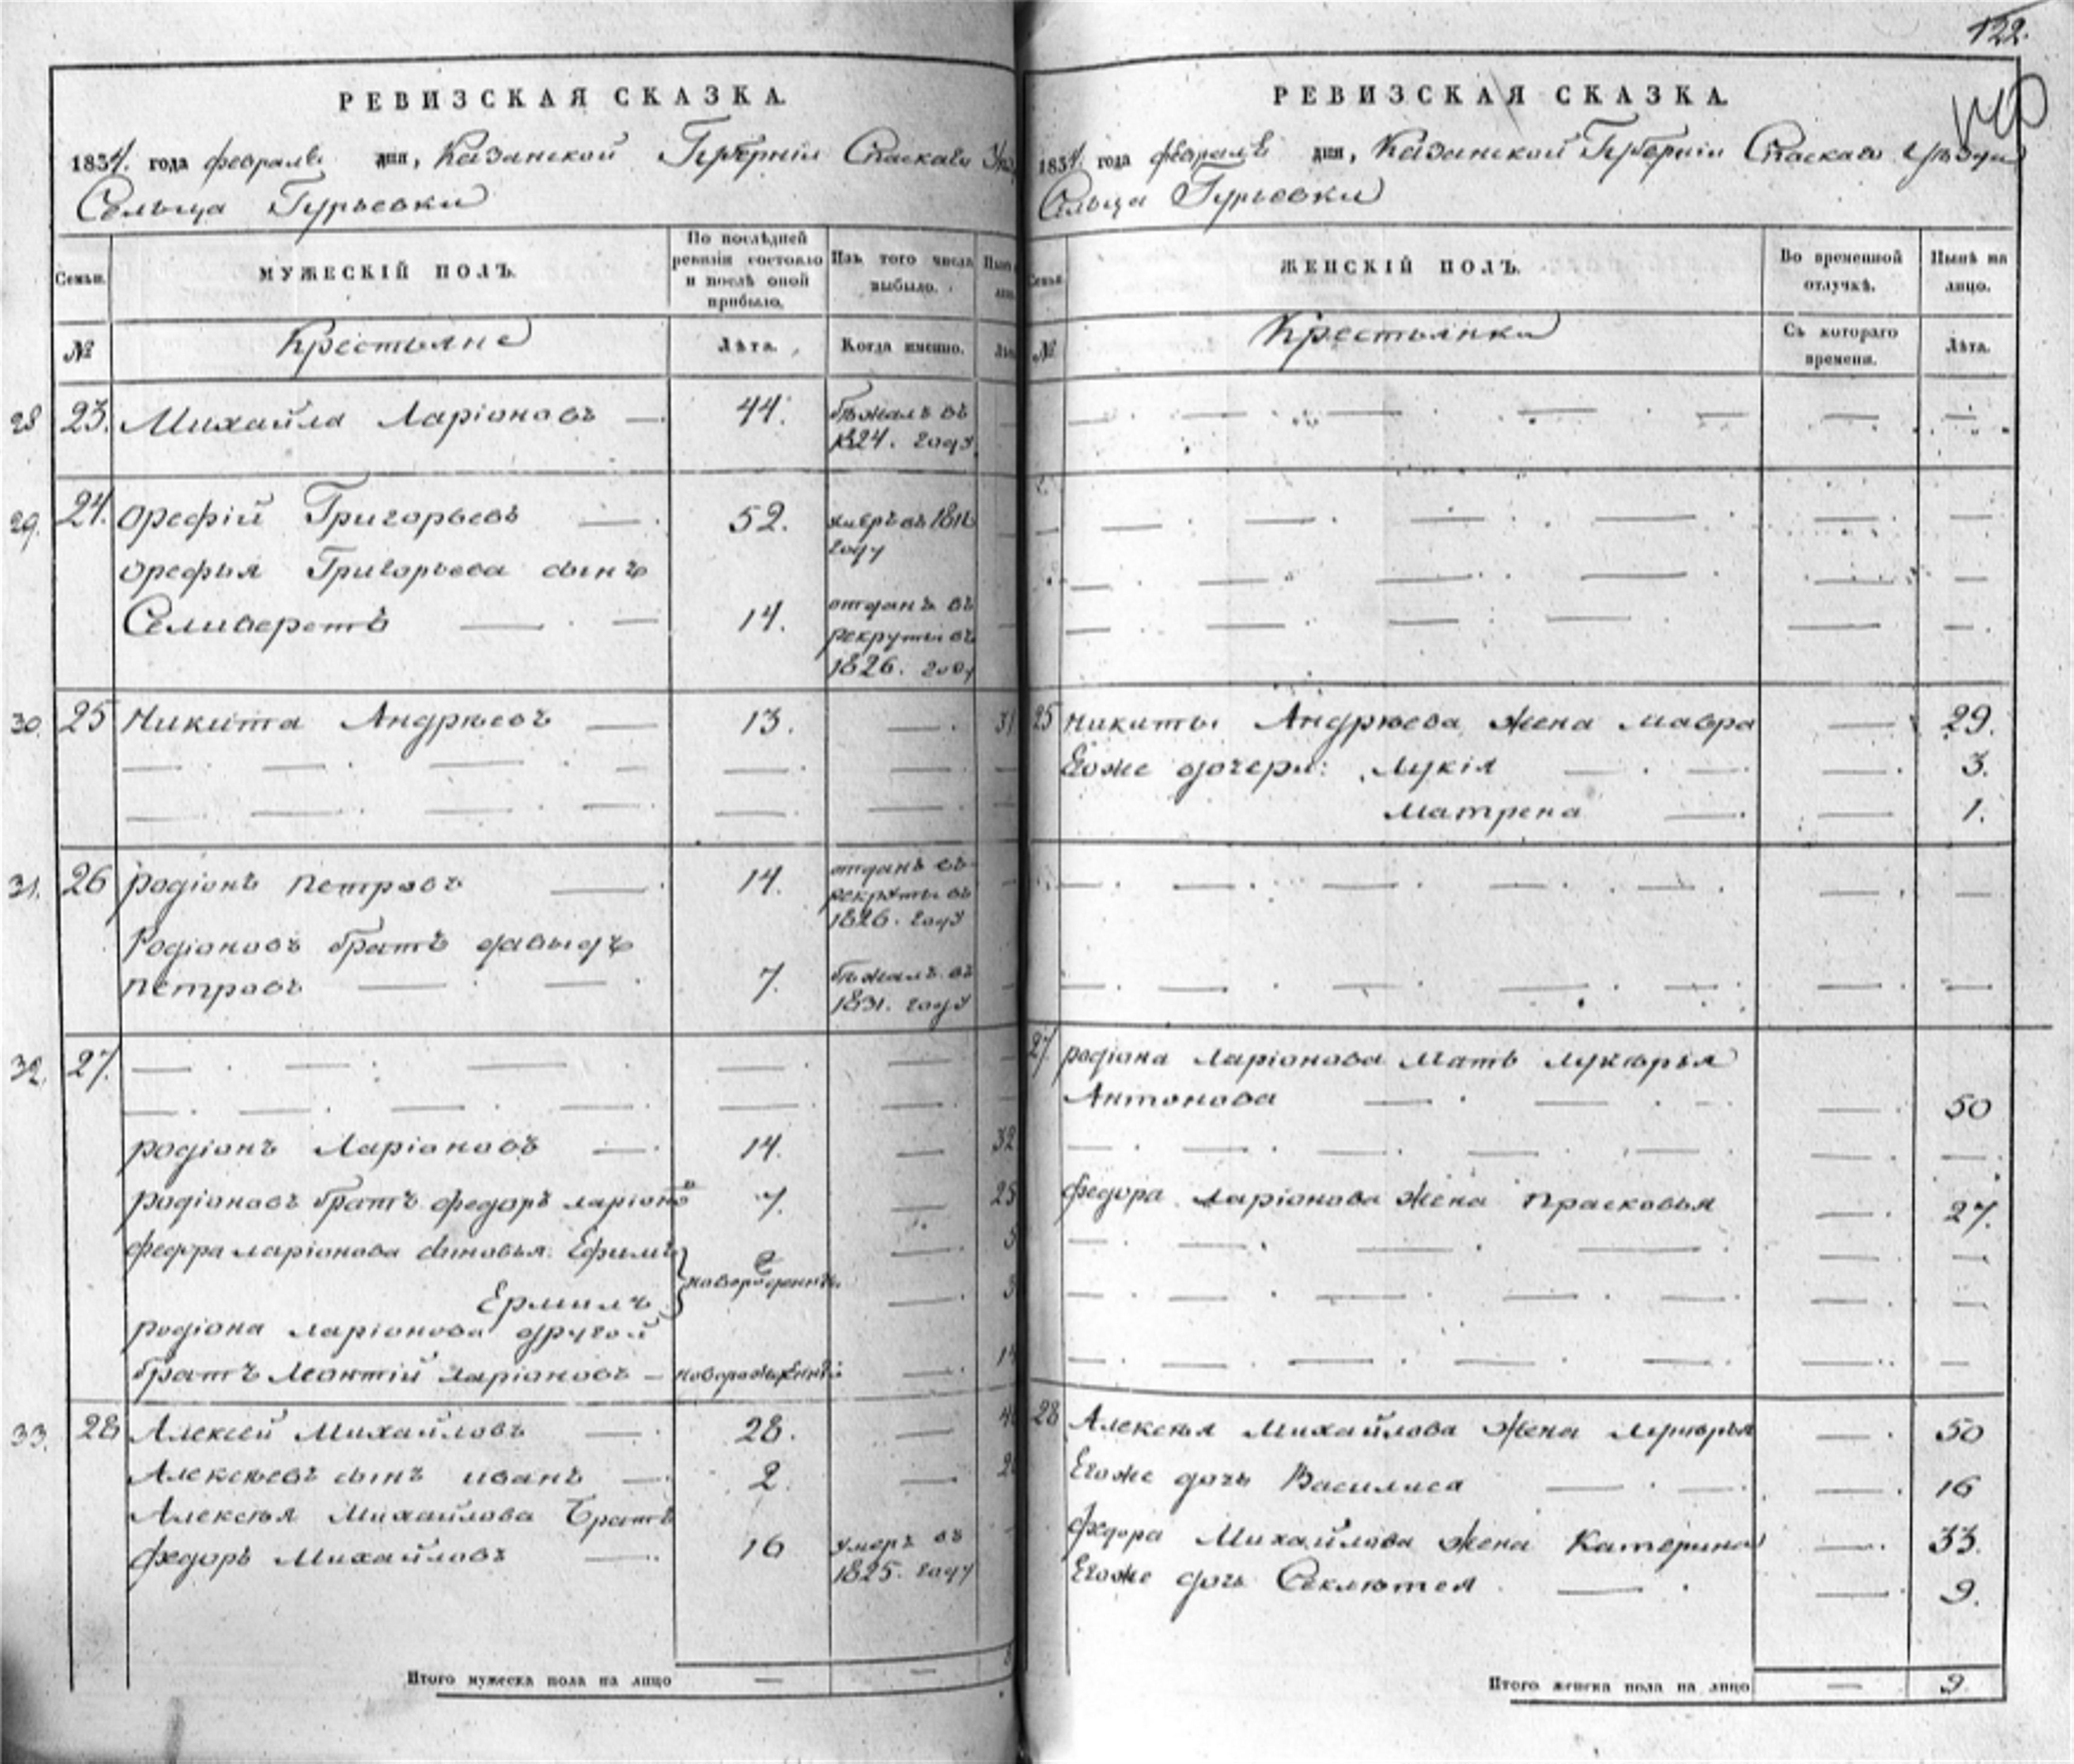 122.
РЕВИЗСКАЯ СКАЗКА.
1834. года февраля дня, Казанской Губерніи Спаскаго
Сельца Гурьевки
Семьи.
МУЖЕСКІЙ ПОЛЪ.
По послѣдней ревизіи состояло и послѣ оной прибыло.
Изъ того числа выбыло.
№
Крестьяне
Лѣта.
Когда именно.
28 23. Михайла Ларіоновъ 44. бѣжалъ въ
1824. году
29. 24. Орефій Григорьевъ 52. умеръ въ
году
Орефья Григорьева сынъ
Селиверстъ 14. отданъ въ
рекруты въ
1826. году
30. 25 Никита Андрѣевъ 13. — 31
31. 26 родіонъ Петровъ 14. отданъ въ
рекруты въ
1826. году
Родіоновъ братъ давыдъ
Петровъ 7. бѣжалъ въ
1831. году
32. 27.
родіонъ Ларіоновъ 14. — 32
родіоновъ братъ федоръ ларіоновъ 7. —
федора ларіонова сыновья: Ефимъ
новорожденныя
Ермилъ
родіона ларіонова другой
братъ Леонтій Ларіоновъ — новорожденный
33. 28 Алексей Михайловъ 28. —
Алексѣевъ сынъ иванъ 2. —
Алексѣя Михайлова братъ
федоръ Михайловъ 16 умеръ въ
1825. году
Итого мужеска пола на лицо — —
РЕВИЗСКАЯ СКАЗКА.
1834. года февраля дня, Казанской Губерніи Спаскаго Уѣзда
Сельца Гурьевки
Семьи
ЖЕНСКІЙ ПОЛЪ.
Во временной отлучкѣ.
Нынѣ на лицо.
№
Крестьянки
Съ котораго времени.
Лѣта.
25 Никиты Андрѣева жена Мавра — 29.
Егоже дочери: Лукія — 3.
Матрена — 1.
27 родіона Ларіонова Мать Лукерья
Антонова — 50
федора Ларіонова жена Прасковья — 27.
28 Алексѣя Михайлова жена Лукерья — 50
Егоже дочь Василиса — 16
федора Михайлова жена Катерина — 33.
Егоже дочь — 9.
Итого женска пола на лицо — 9